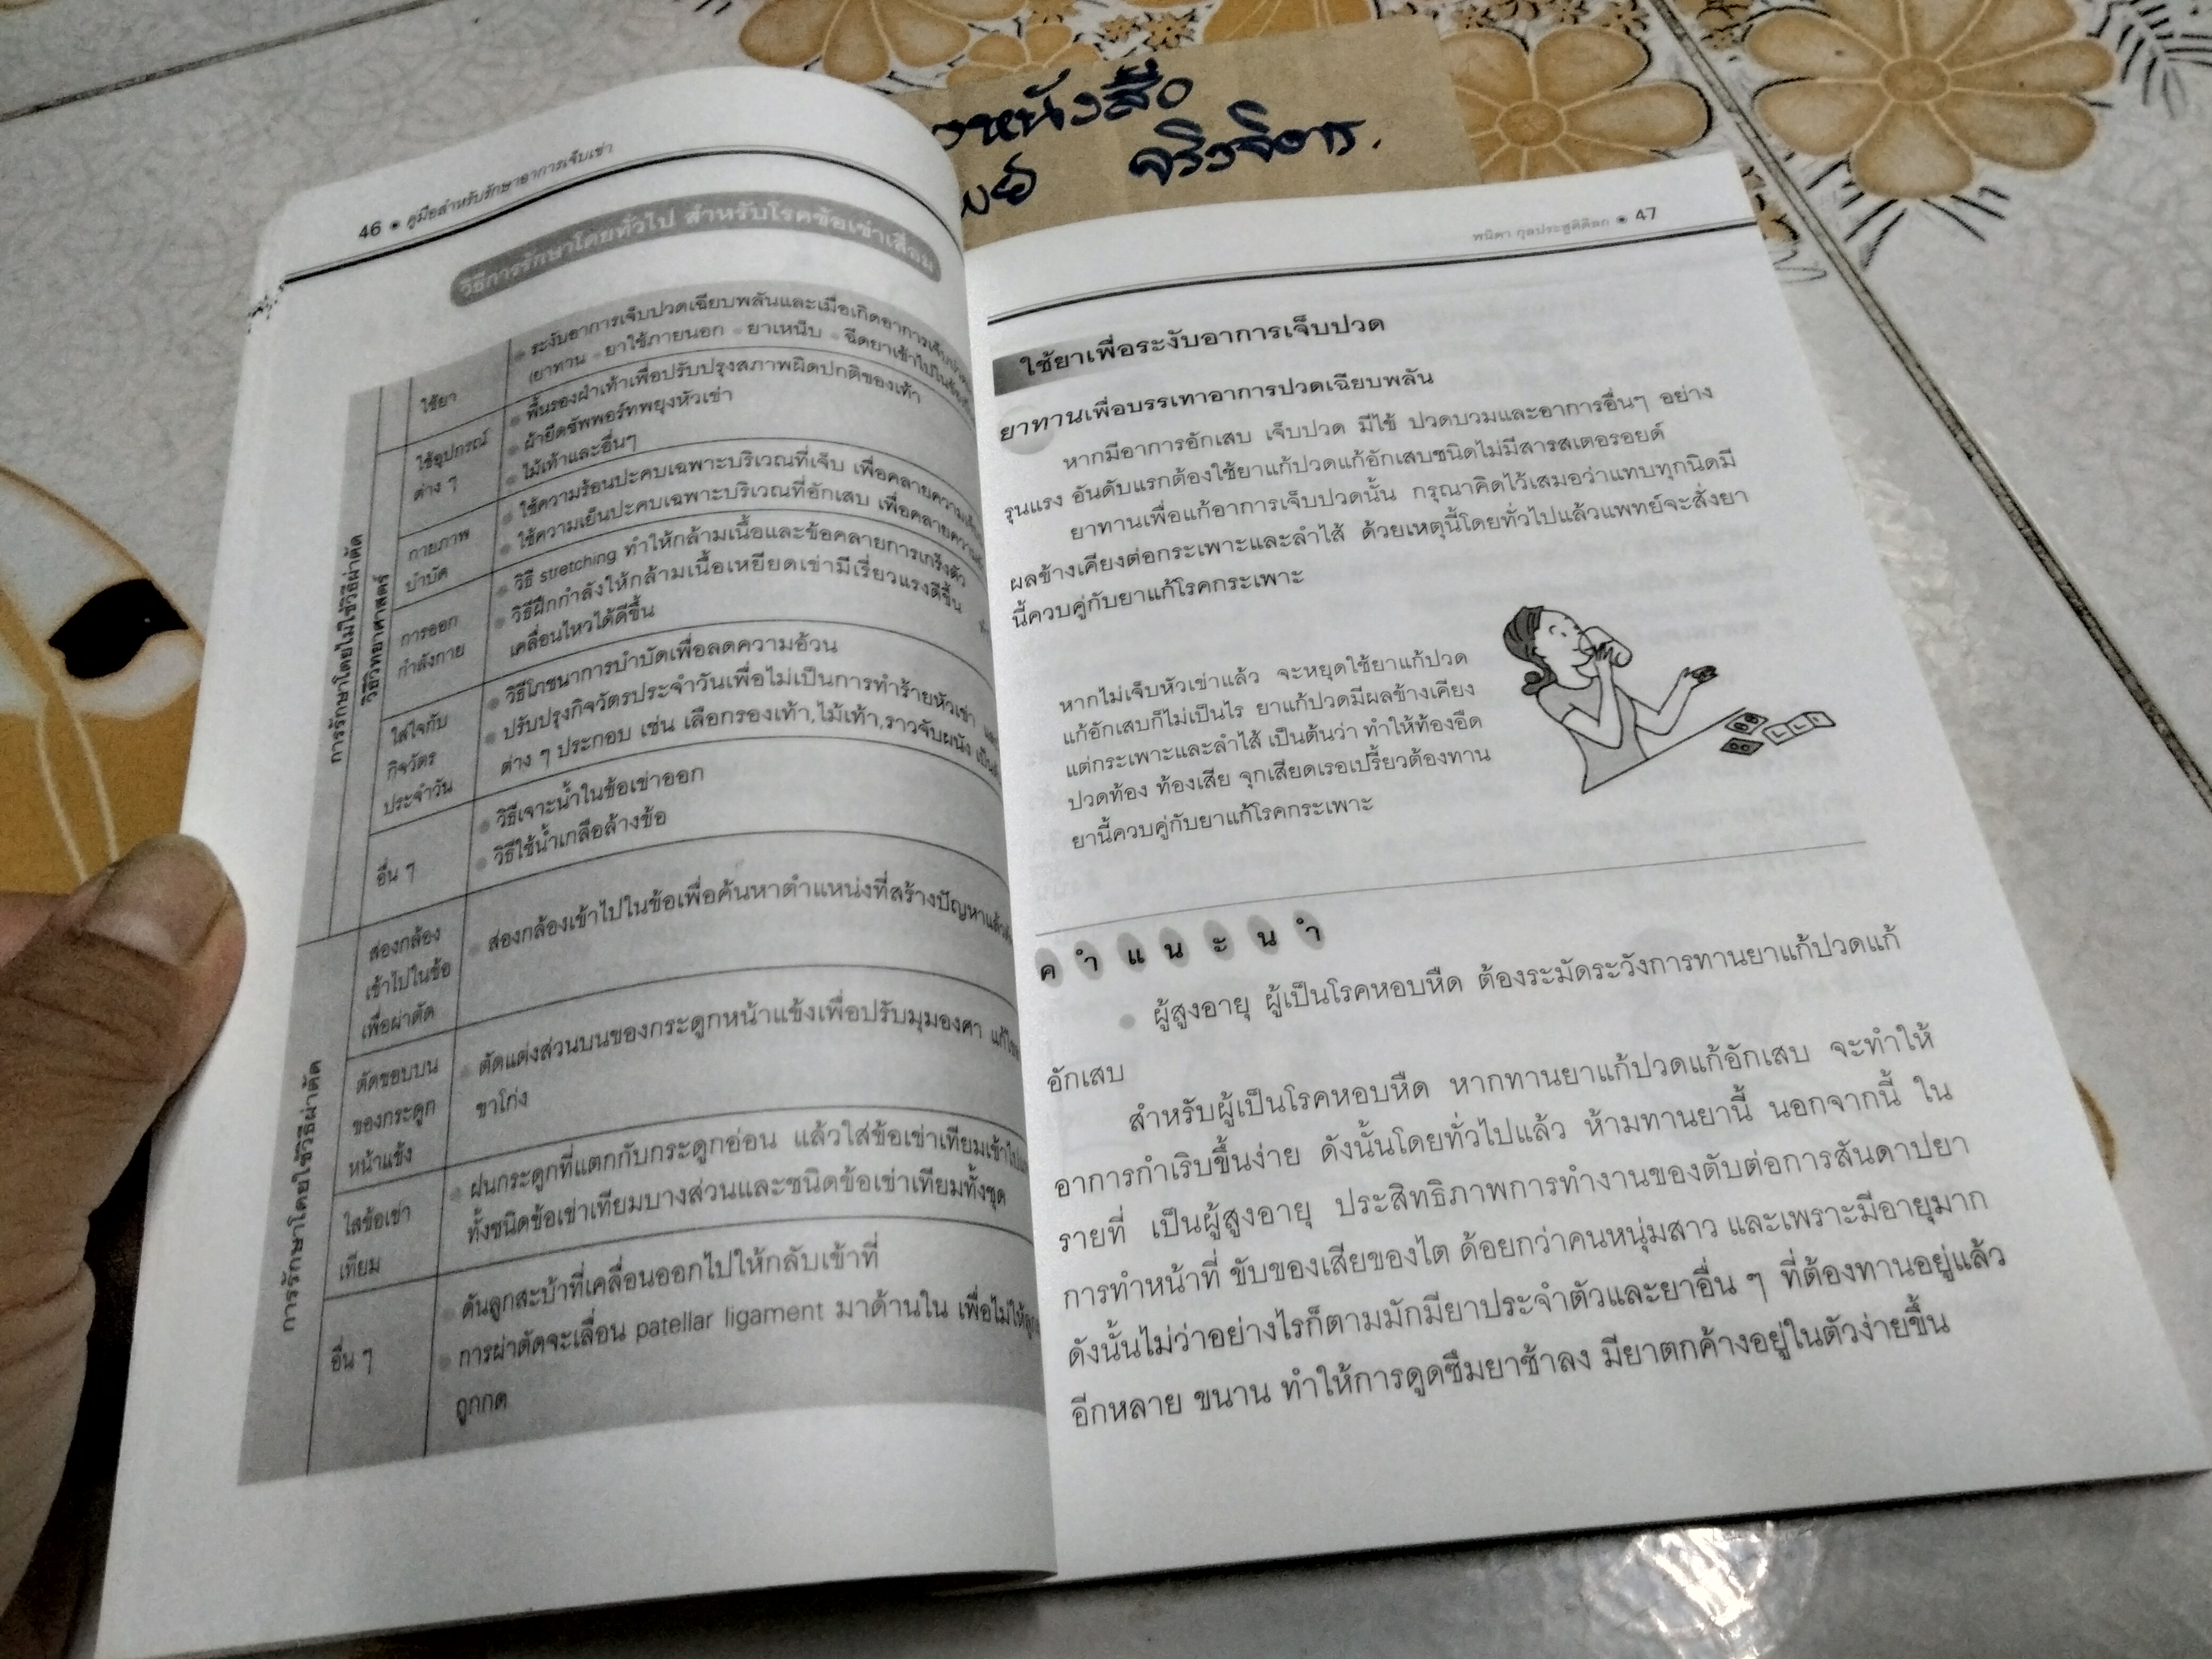 46 ● คู่มือสำหรับรักษาอาการเจ็บเข่า
วิธีการรักษาโดยทั่วไป สำหรับโรคข้อเข่าเสื่อม
การรักษาโดยไม่ใช้วิธีผ่าตัด
วิธีวิทยาศาสตร์
ใช้ยา
● ระงับอาการเจ็บปวดเฉียบพลันและเมื่อเกิดอาการเจ็บปวด
(ยาทาน ● ยาใช้ภายนอก ● ยาเหน็บ ● ฉีดยาเข้าไปในข้อ
ใช้อุปกรณ์
ต่าง ๆ
● พื้นรองฝ่าเท้าเพื่อปรับปรุงสภาพผิดปกติของเท้า
● ผ้ายืดซัพพอร์ทพยุงหัวเข่า
● ไม้เท้าและอื่นๆ
กายภาพ
บำบัด
● ใช้ความร้อนประคบเฉพาะบริเวณที่เจ็บ เพื่อคลายความ
● ใช้ความเย็นประคบเฉพาะบริเวณที่อักเสบ เพื่อคลายความ
การออก
กำลังกาย
● วิธี stretching ทำให้กล้ามเนื้อและข้อคลายการเกร็งตัว
● วิธีฝึกกำลังให้กล้ามเนื้อเหยียดเข่ามีเรี่ยวแรงดีขึ้น
เคลื่อนไหวได้ดีขึ้น
ใส่ใจกับ
กิจวัตร
ประจำวัน
● วิธีโภชนาการบำบัดเพื่อลดความอ้วน
● ปรับปรุงกิจวัตรประจำวันเพื่อไม่เป็นการทำร้ายหัวเข่า
ต่าง ๆ ประกอบ เช่น เลือกรองเท้า,ไม้เท้า,ราวจับผนัง
อื่น ๆ
● วิธีเจาะน้ำในข้อเข่าออก
● วิธีใช้น้ำเกลือล้างข้อ
การรักษาโดยใช้วิธีผ่าตัด
ส่องกล้อง
เข้าไปในข้อ
เพื่อผ่าตัด
● ส่องกล้องเข้าไปในข้อเพื่อค้นหาตำแหน่งที่สร้างปัญหา
ตัดขอบบน
ของกระดูก
หน้าแข้ง
● ตัดแต่งส่วนบนของกระดูกหน้าแข้งเพื่อปรับมุมองศา
ขาโก่ง
ใส่ข้อเข่า
เทียม
● ฝนกระดูกที่แตกกับกระดูกอ่อน แล้วใส่ข้อเข่าเทียมเข้าไป
ทั้งชนิดข้อเข่าเทียมบางส่วนและชนิดข้อเข่าเทียมทั้งชุด
อื่น ๆ
● ดันลูกสะบ้าที่เคลื่อนออกไปให้กลับเข้าที่
● การผ่าตัดจะเลื่อน patellar ligament มาด้านใน เพื่อไม่ให้
ถูกกด
หนังสือ
จริงจิตร.
พนิดา กุลประสูติดิลก ● 47
ใช้ยาเพื่อระงับอาการเจ็บปวด
ยาทานเพื่อบรรเทาอาการปวดเฉียบพลัน
หากมีอาการอักเสบ เจ็บปวด มีไข้ ปวดบวมและอาการอื่นๆ อย่าง
รุนแรง อันดับแรกต้องใช้ยาแก้ปวดแก้อักเสบชนิดไม่มีสารสเตอรอยด์
ยาทานเพื่อแก้อาการเจ็บปวดนั้น กรุณาคิดไว้เสมอว่าแทบทุกนิดมี
ผลข้างเคียงต่อกระเพาะและลำไส้ ด้วยเหตุนี้โดยทั่วไปแล้วแพทย์จะสั่งยา
นี้ควบคู่กับยาแก้โรคกระเพาะ
หากไม่เจ็บหัวเข่าแล้ว จะหยุดใช้ยาแก้ปวด
แก้อักเสบก็ไม่เป็นไร ยาแก้ปวดมีผลข้างเคียง
แต่กระเพาะและลำไส้ เป็นต้นว่า ทำให้ท้องอืด
ปวดท้อง ท้องเสีย จุกเสียดเรอเปรี้ยวต้องทาน
ยานี้ควบคู่กับยาแก้โรคกระเพาะ
คำแนะนำ
● ผู้สูงอายุ ผู้เป็นโรคหอบหืด ต้องระมัดระวังการทานยาแก้ปวดแก้
อักเสบ
สำหรับผู้เป็นโรคหอบหืด หากทานยาแก้ปวดแก้อักเสบ จะทำให้
อาการกำเริบขึ้นง่าย ดังนั้นโดยทั่วไปแล้ว ห้ามทานยานี้ นอกจากนี้ ใน
รายที่ เป็นผู้สูงอายุ ประสิทธิภาพการทำงานของตับต่อการสันดาปยา
การทำหน้าที่ ขับของเสียของไต ด้อยกว่าคนหนุ่มสาว และเพราะมีอายุมาก
ดังนั้นไม่ว่าอย่างไรก็ตามมักมียาประจำตัวและยาอื่น ๆ ที่ต้องทานอยู่แล้ว
อีกหลาย ขนาน ทำให้การดูดซึมยาช้าลง มียาตกค้างอยู่ในตัวง่ายขึ้น